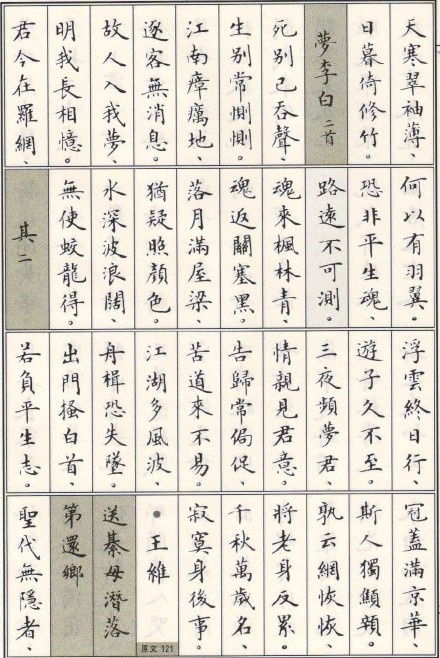 天寒翠袖薄、
日暮倚修竹。
夢李白 二首
死別已吞聲、
生別常惻惻。
江南瘴癘地、
逐客無消息。
故人入我夢、
明我長相憶。
君今在羅網、
何以有羽翼。
恐非平生魂、
路遠不可測。
魂來楓林青、
魂返關塞黑。
落月滿屋梁、
猶疑照顏色。
水深波浪闊、
無使蛟龍得。
其二
浮雲終日行、
遊子久不至。
三夜頻夢君、
情親見君意。
告歸常侷促、
苦道來不易。
江湖多風波、
舟楫恐失墜。
出門搔白首、
若負平生志。
冠蓋滿京華、
斯人獨顦顇。
孰云網恢恢、
將老身反累。
千秋萬歲名、
寂寞身後事。
●王維
送綦毋潛落
第還鄉
原文 121
聖代無隱者、